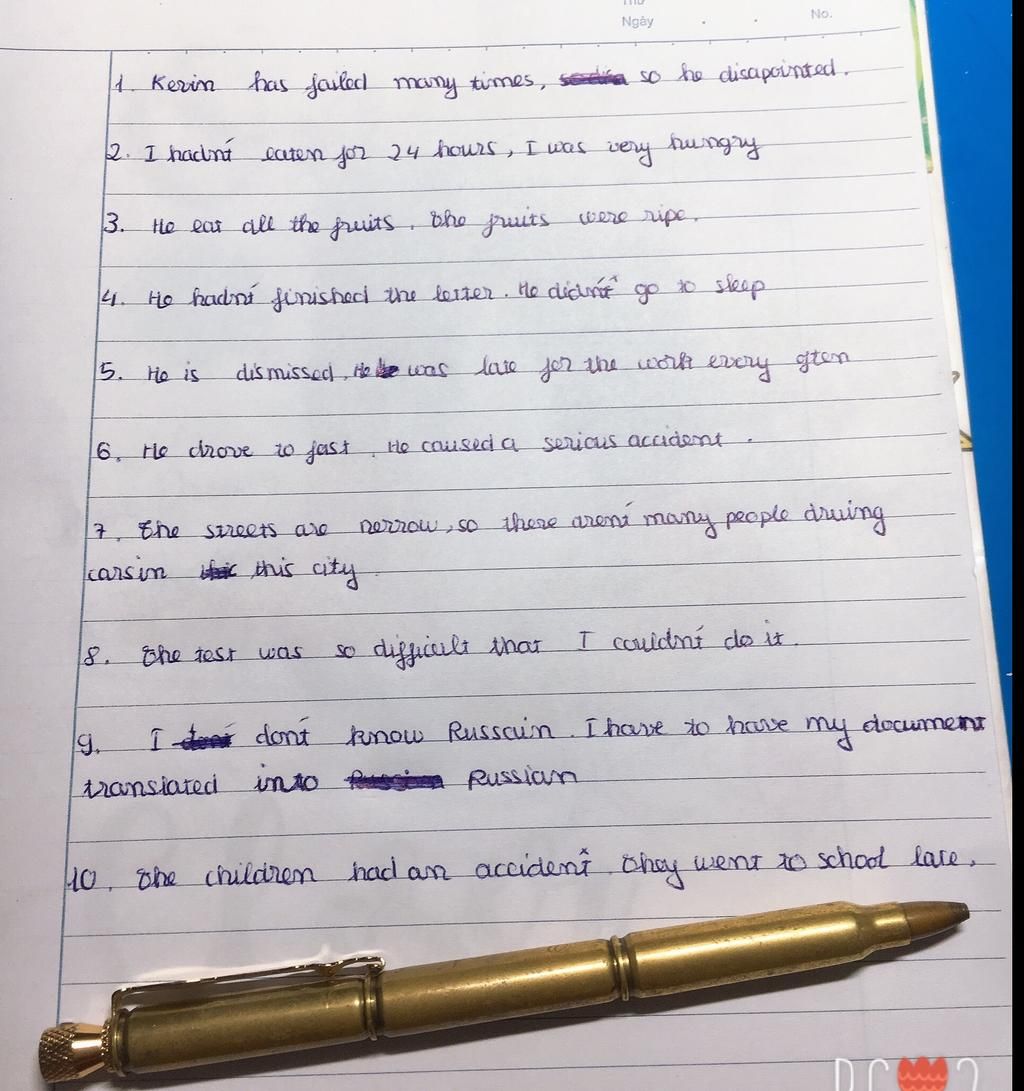 Ngày . . No.
1. Kevin has failed many times, so he disapointed.
2. I hadn't eaten for 24 hours, I was very hungry
3. He eat all the fruits. The fruits were ripe.
4. He hadn't finished the letter. He didn't go to sleep
5. He is dismissed. He was late for the work every often
6. He drove to fast. He caused a serious accident.
7. The streets are nerrow, so there aren't many people druing
carsin this city
8. The test was so difficult that I couldn't do it.
9. I don't know Russain. I have to have my document
translated into Russian
10. The children had an accident. They went to school late.